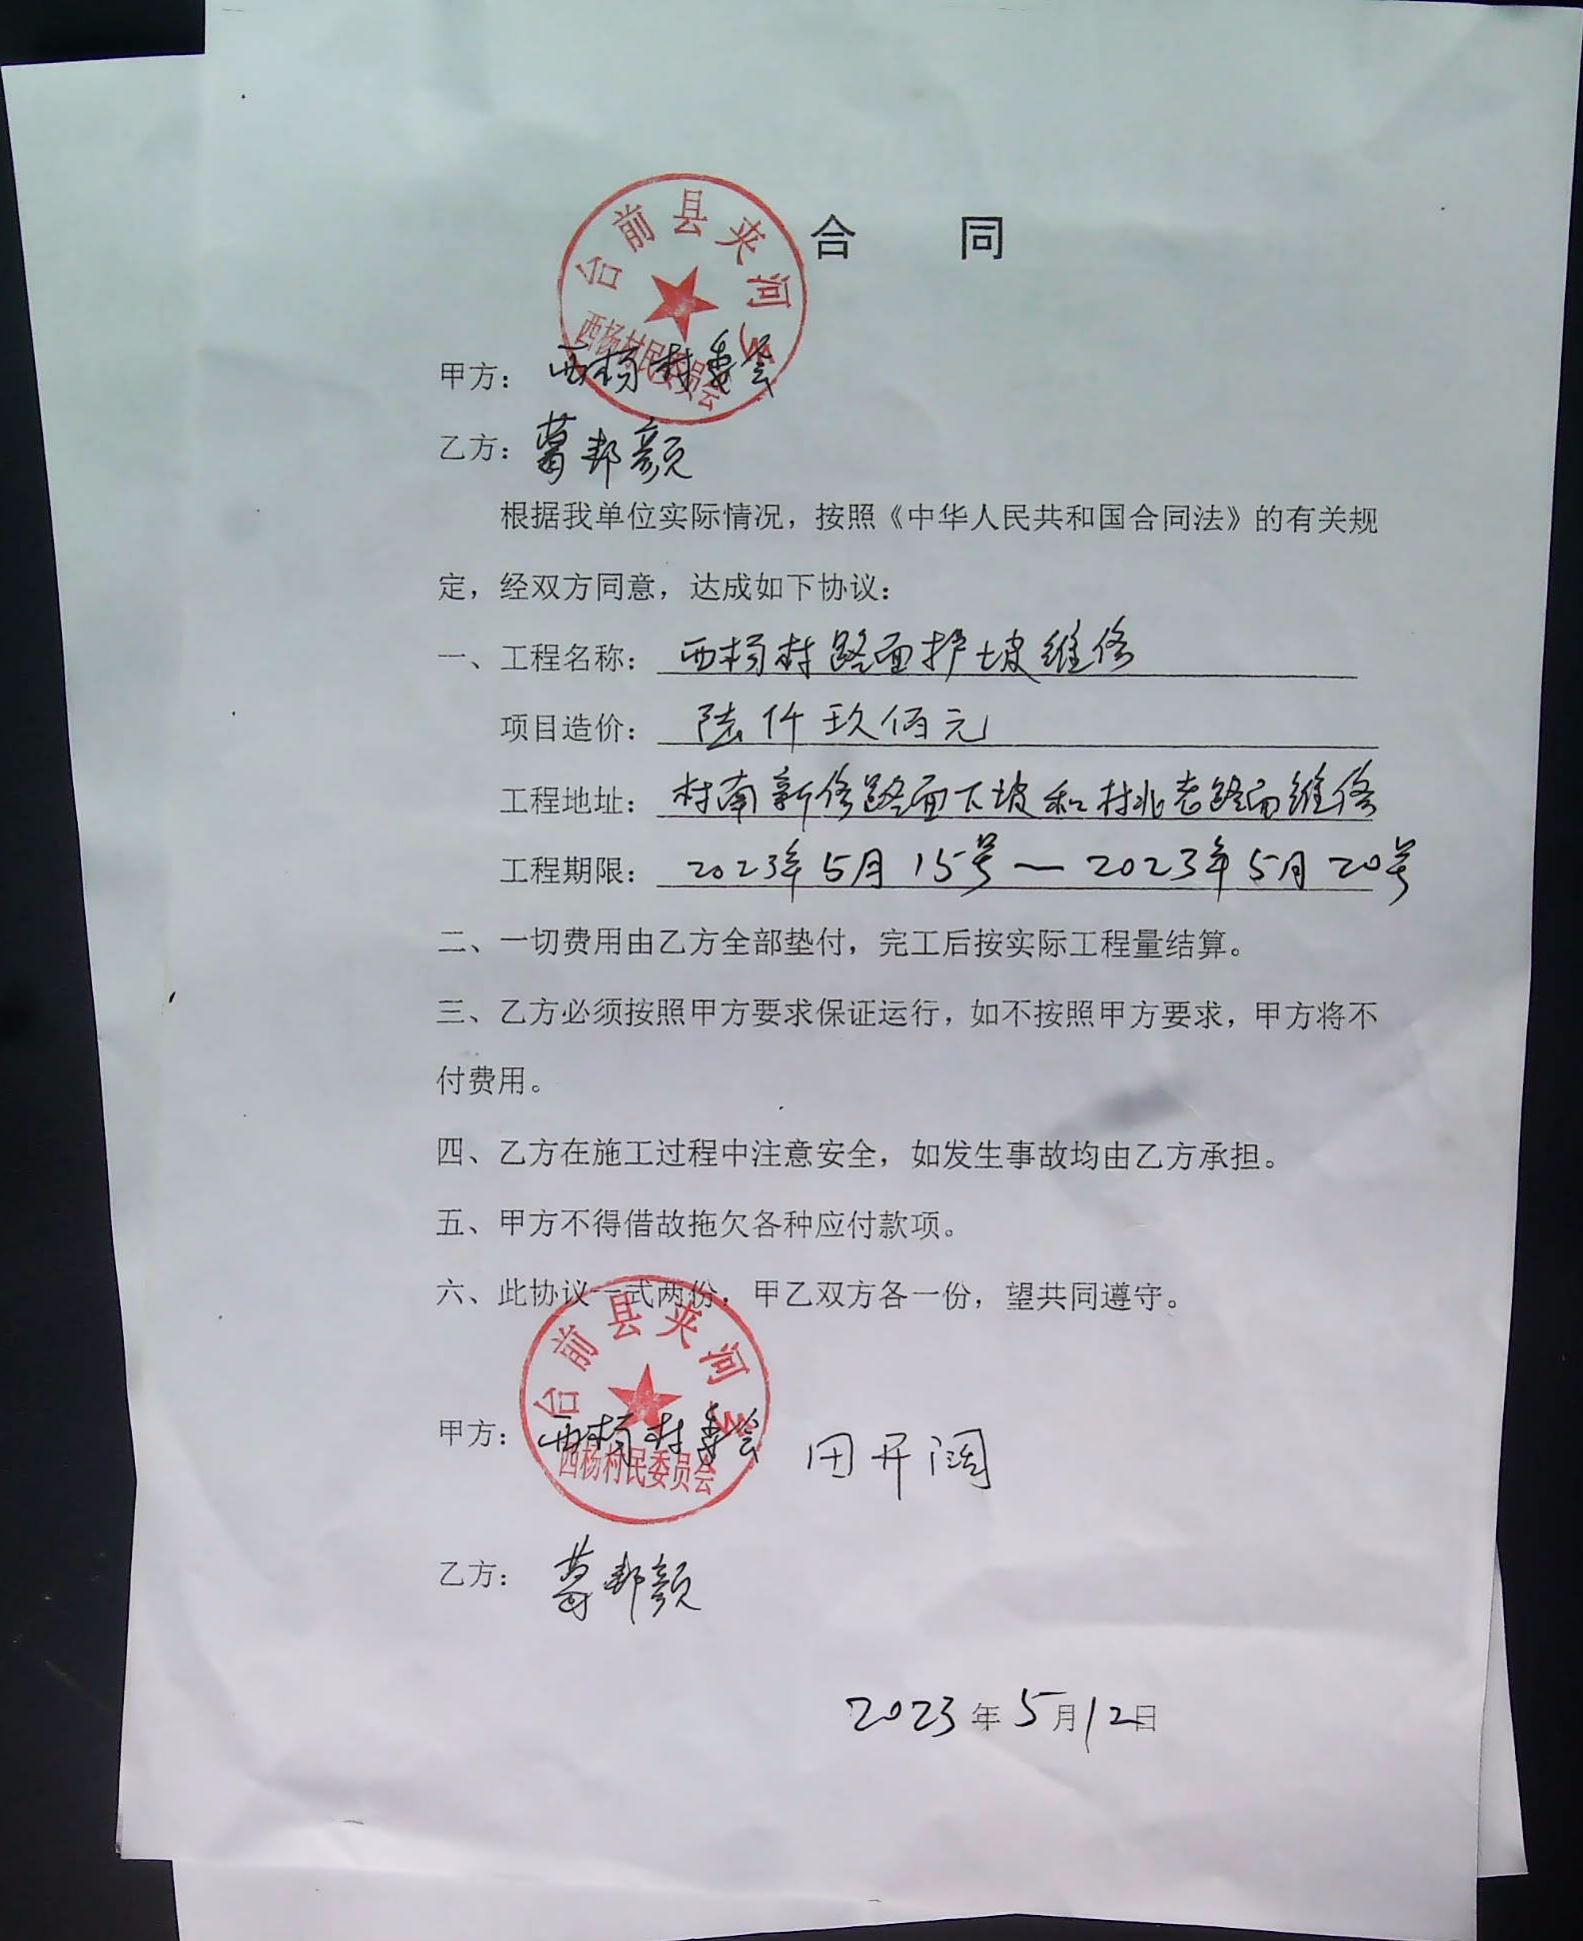 合 同
台前县夹河乡
西杨村民委员会
甲方：西杨村委会
乙方：葛邦颜
根据我单位实际情况，按照《中华人民共和国合同法》的有关规
定，经双方同意，达成如下协议：
一、工程名称：西杨村路面护坡维修
项目造价：陆仟玖佰元
工程地址：村南新修路面下坡和村北老路面维修
工程期限：2023年5月15号—2023年5月20号
二、一切费用由乙方全部垫付，完工后按实际工程量结算。
三、乙方必须按照甲方要求保证运行，如不按照甲方要求，甲方将不
付费用。
四、乙方在施工过程中注意安全，如发生事故均由乙方承担。
五、甲方不得借故拖欠各种应付款项。
六、此协议一式两份，甲乙双方各一份，望共同遵守。
台前县夹河乡
西杨村民委员会
甲方：西杨村委会 田开阔
乙方：葛邦颜
2023年5月12日